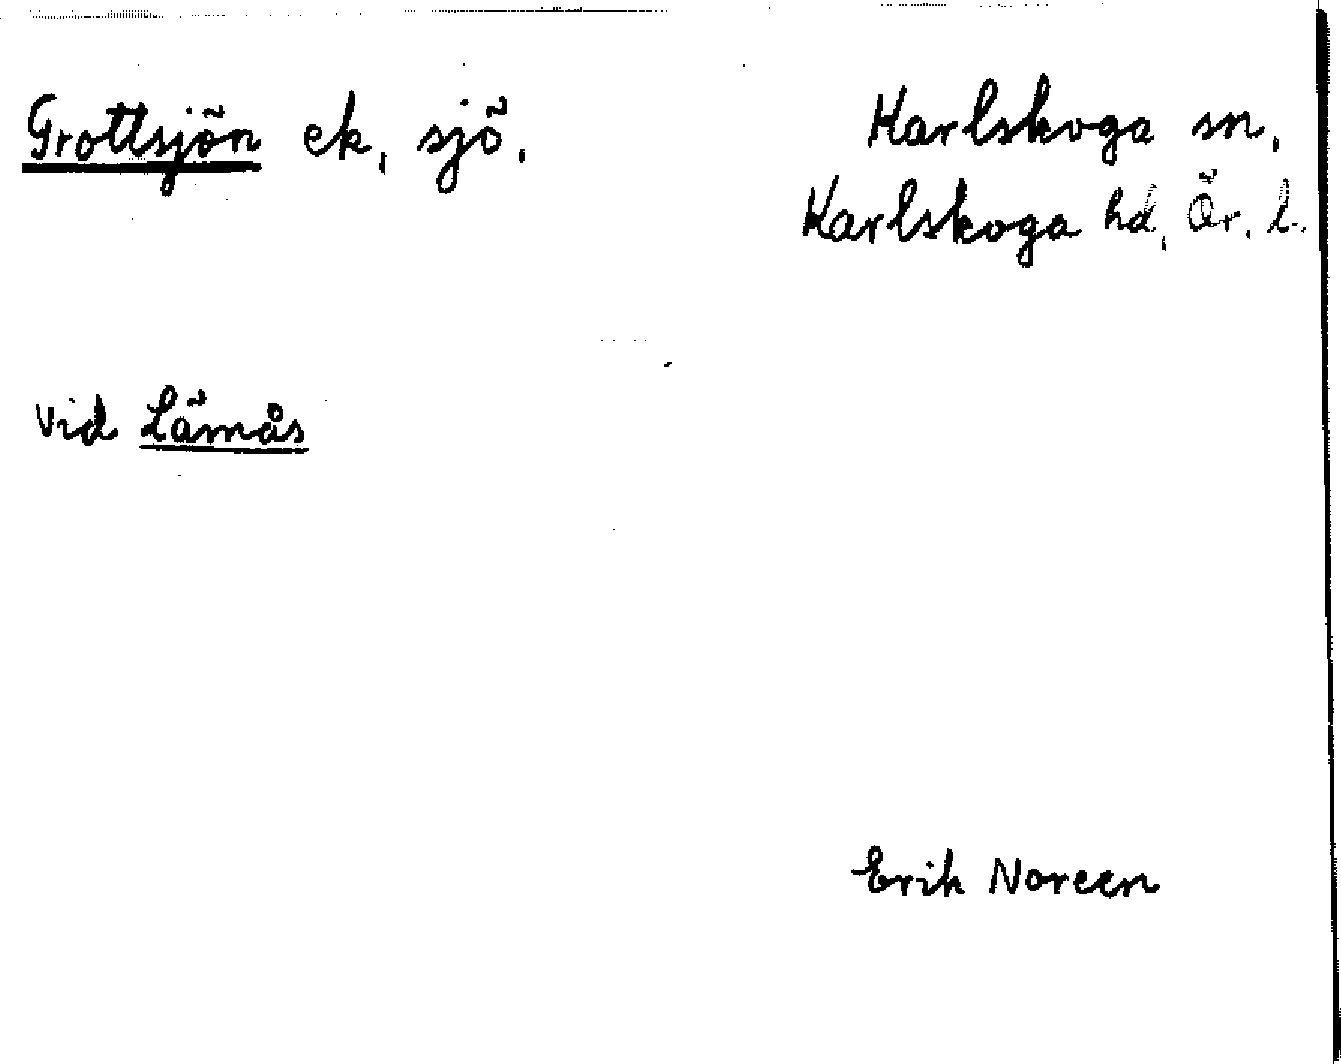 Grottsjön ek, sjö.
Karlskoga sn,
Karlskoga hd, Ör. l.
vid Lämås
Erik Noreen